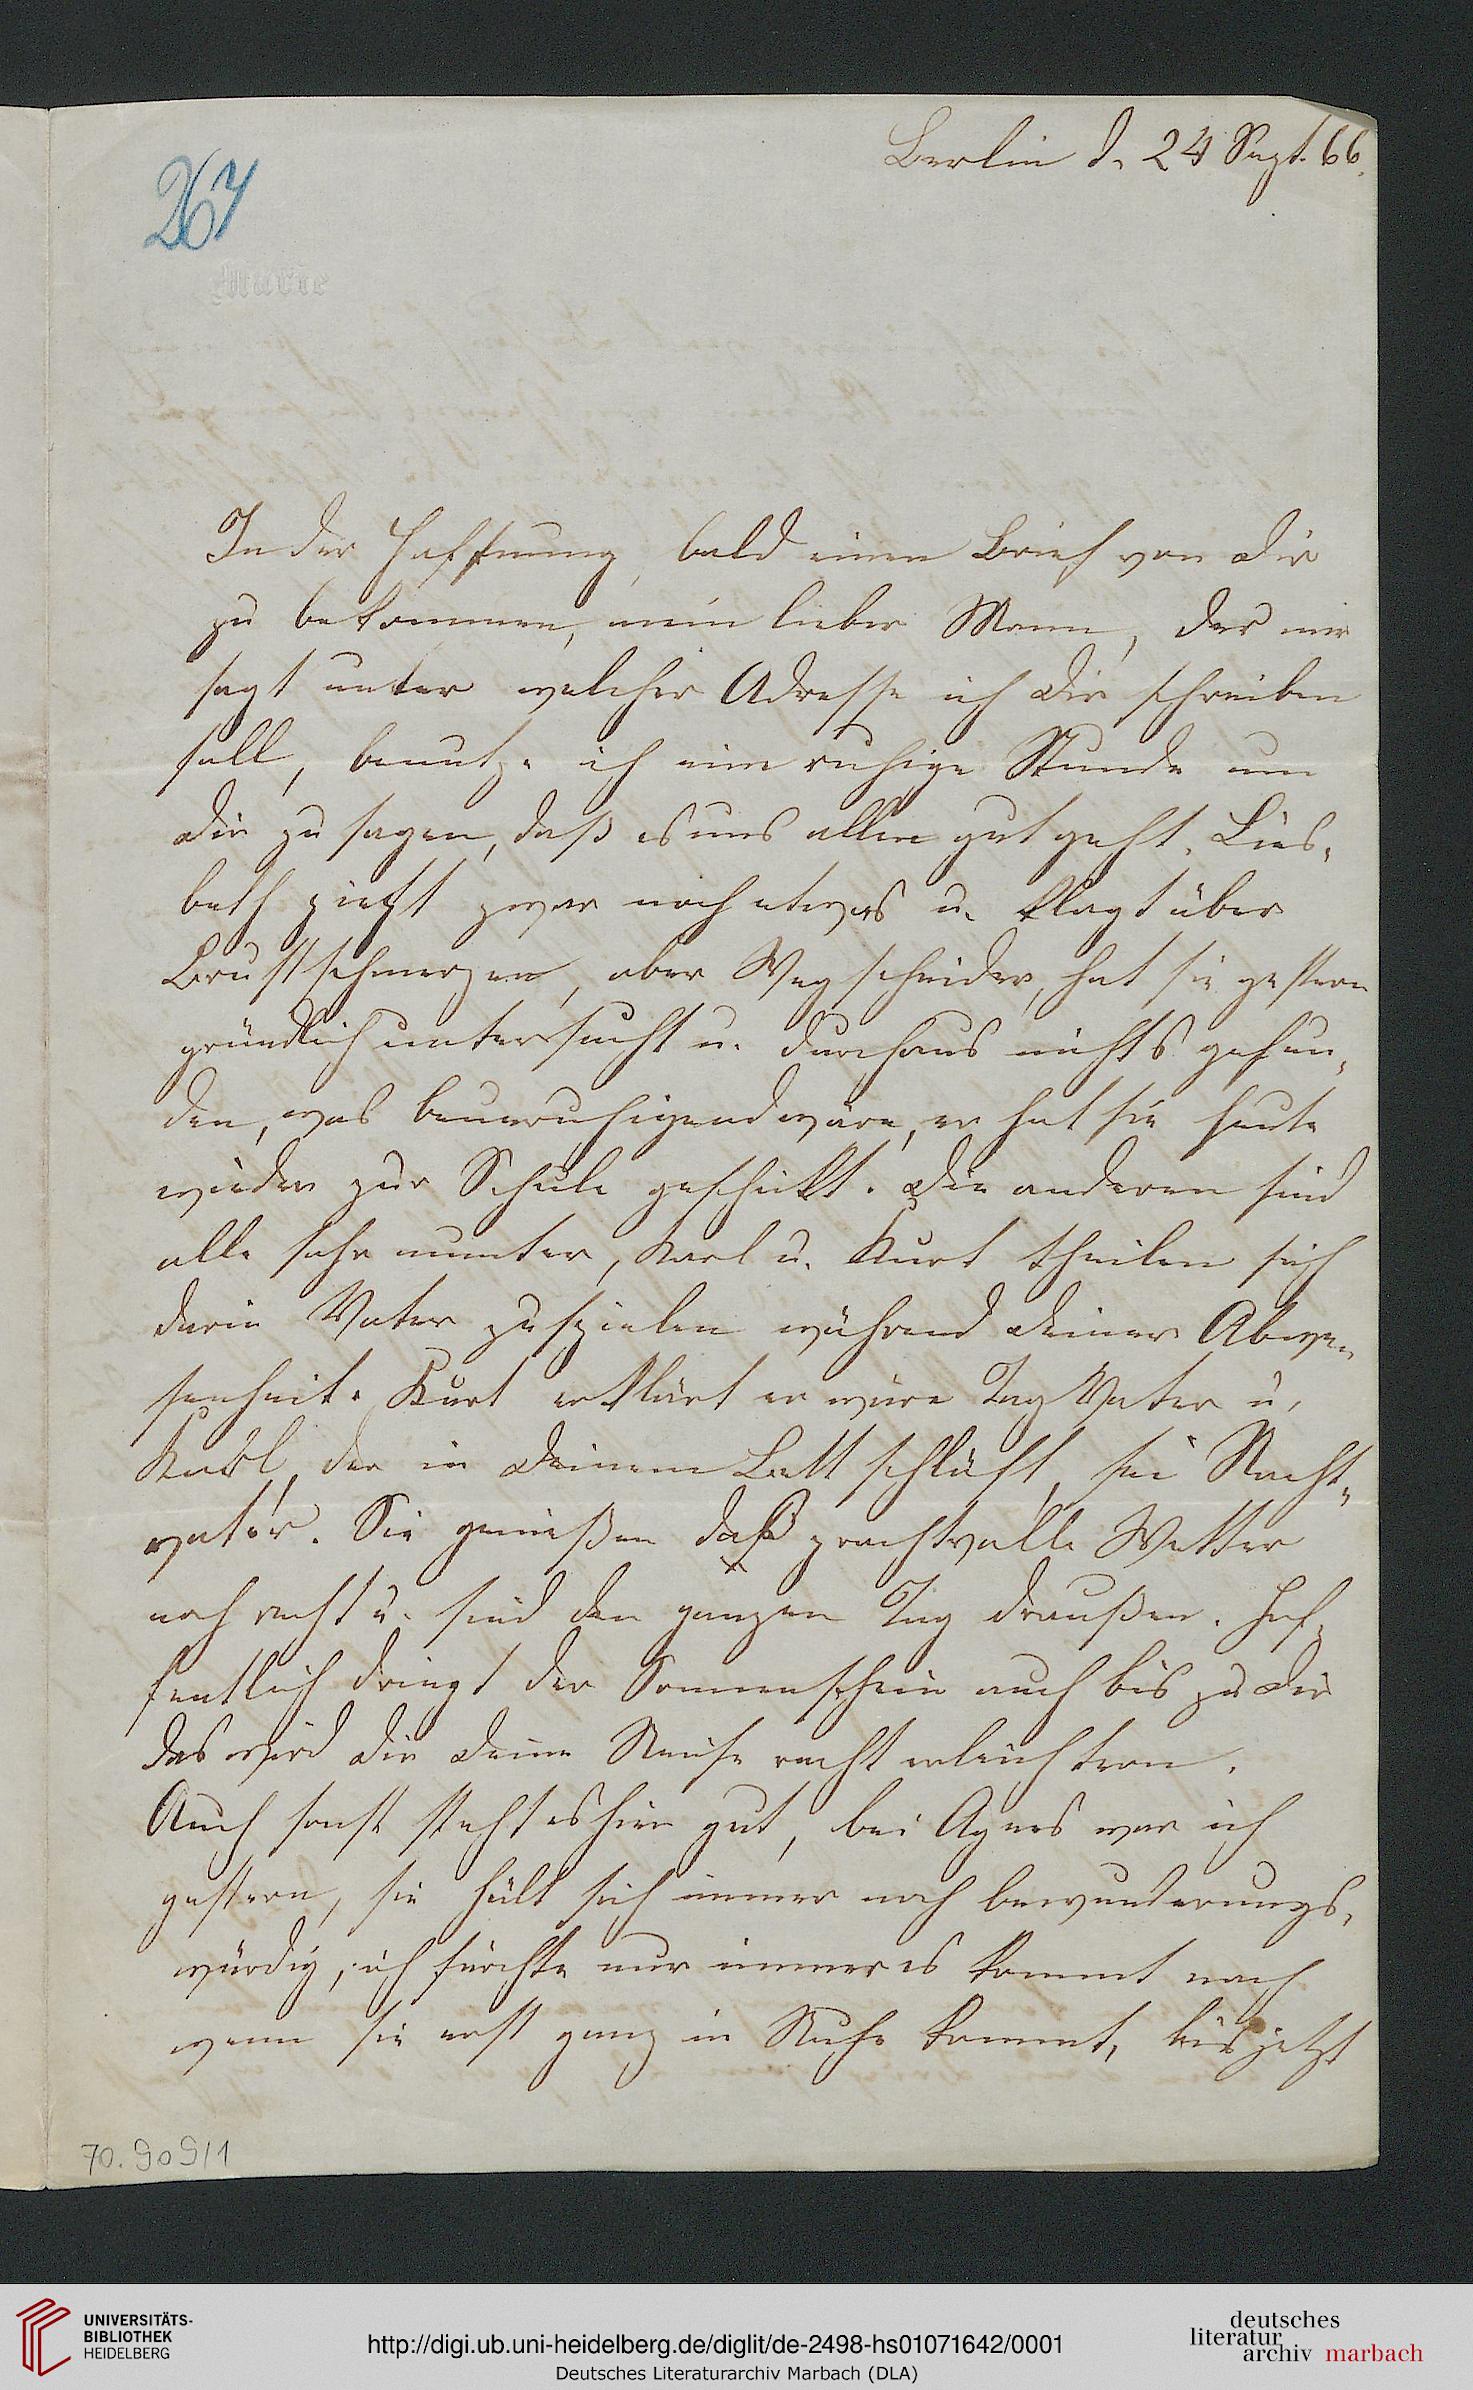 Berlin d. 24 Sept. 66.
267
Marie
In der Hoffnung, bald einen Brief von Dir
zu bekommen, mein lieber Mann, der mir
sagt unter welcher Adresse ich Dir schreiben
soll, benutze ich eine ruhige Stunde um
Dir zu sagen, daß es uns allen gut geht. Lies-
beth piept zwar noch etwas u. klagt über
Brustschmerzen, aber Wegscheider, hat sie gestern
gründlich untersucht u. durchaus nichts gefun-
den, was beunruhigend wäre, er hat sie heute
wieder zur Schule geschickt. Die anderen sind
alle sehr munter, Karl u. Kurt theilen sich
darin Vater zu spielen während Deiner Abwe-
senheit. Kurt erklärt er wäre Tag Vater u.
Karl, der in Deinem Bett schläft, sei Nacht-
vater. Sie genießen das prachtvolle Wetter
noch recht u. sind den ganzen Tag draußen. Hof-
fentlich dringt der Sonnenschein auch bis zu Dir
das wird Dir Deine Reise recht erleichtern.
Auch sonst steht es hier gut, bei Agnes war ich
gestern, sie hält sich immer noch bewunderungs-
würdig, ich fürchte nur immer es kommt nach
wenn sie erst ganz in Ruhe kommt, bis jetzt
70.909/1
UNIVERSITÄTS-
BIBLIOTHEK
HEIDELBERG
http://digi.ub.uni-heidelberg.de/diglit/de-2498-hs01071642/0001
Deutsches Literaturarchiv Marbach (DLA)
deutsches
literatur
archiv marbach